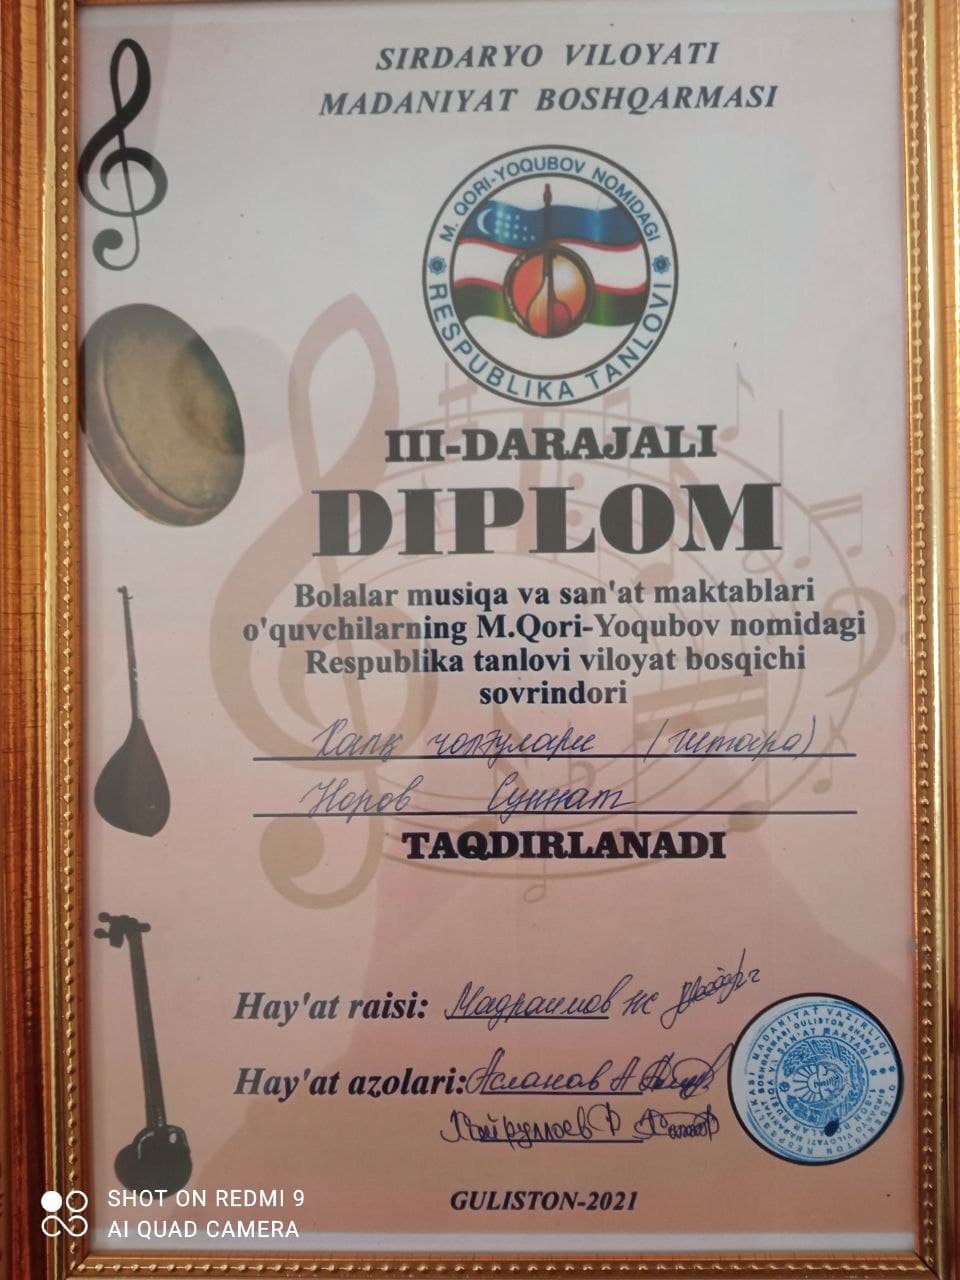 SIRDARYO VILOYATI
MADANIYAT BOSHQARMASI
M. QORI-YOQUBOV NOMIDAGI
RESPUBLIKA TANLOVI
III-DARAJALI
DIPLOM
Bolalar musiqa va san'at maktablari
o'quvchilarning M.Qori-Yoqubov nomidagi
Respublika tanlovi viloyat bosqichi
sovrindori
Халқ чолғулари (гитара)
Норов Суннат
TAQDIRLANADI
Hay'at raisi: Мадраимов
Hay'at azolari: Асланов А
Хайруллоев Ф
GULISTON-2021
SHOT ON REDMI 9
AI QUAD CAMERA